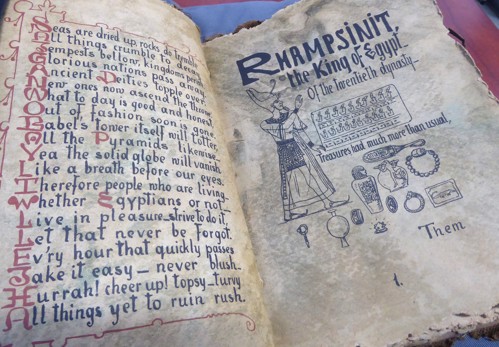 Seas are dried up, rocks do tremble
All things crumble to decay
Tempests bellow, kingdoms perish
Glorious nations pass away
Ancient Deities topple over
New ones now ascend the throne
What to day is good and honest
Out of fashion soon is gone
Babel's tower itself will totter,
All the Pyramids likewise—
Yea the solid globe will vanish
Like a breath before our eyes.
Therefore people who are living
Whether Egyptians or not—
Live in pleasure—strive to do it,
Let that never be forgot.
Ev'ry hour that quickly passes
Take it easy— never blush—
Hurrah! cheer up! topsy-turvy
All things yet to ruin rush.
RHAMPSINIT,
the King of Egypt
Of the twentieth dynasty—
Treasures had much more than usual,
Them
1.